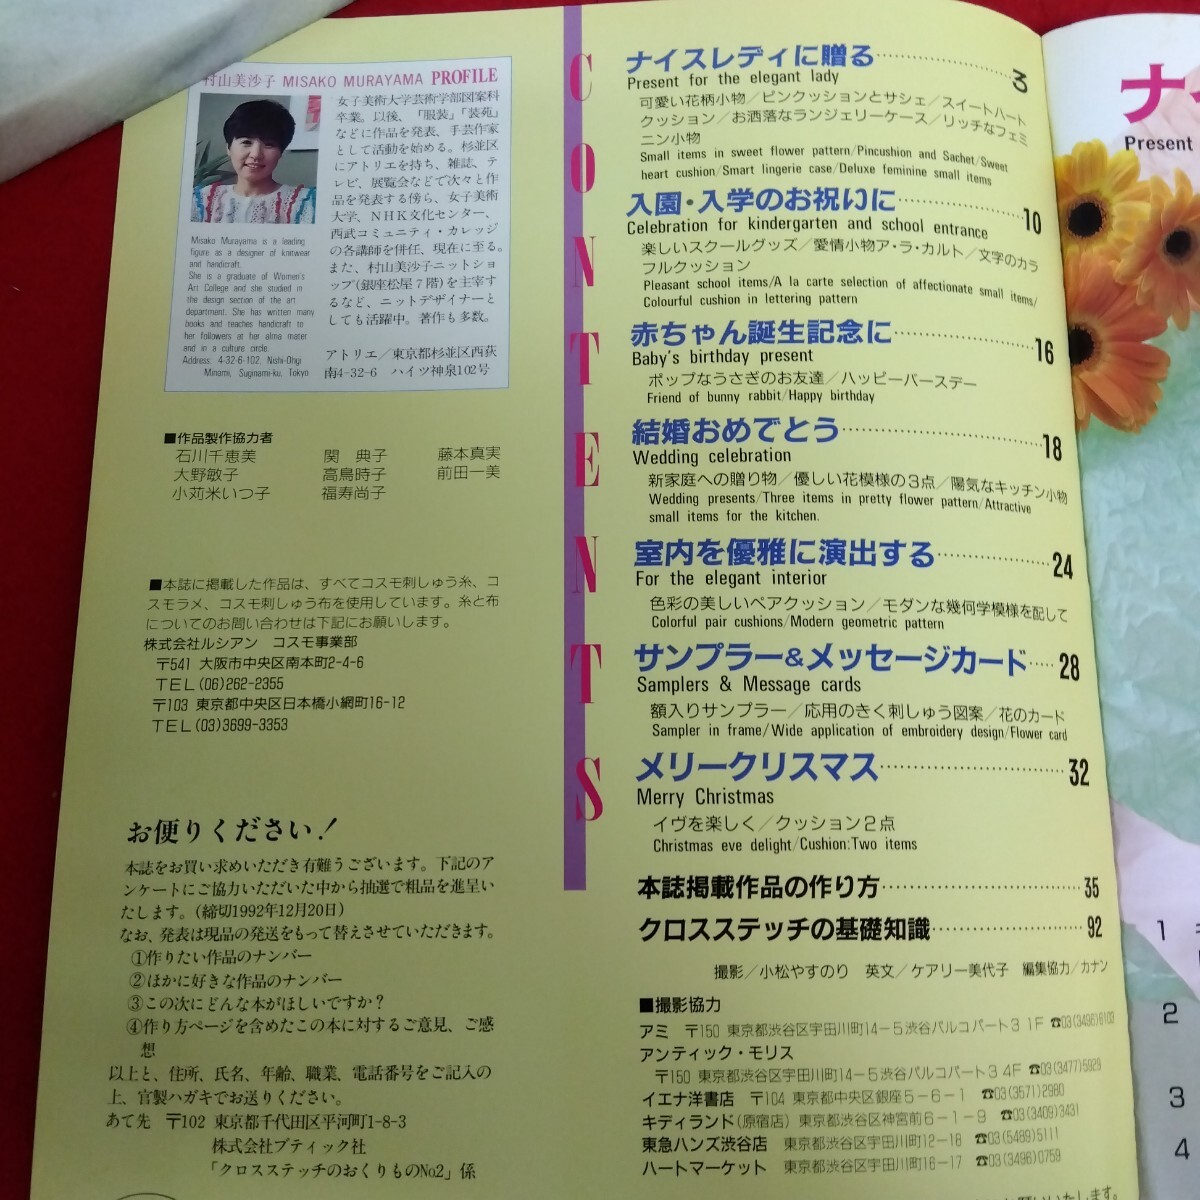 村山美沙子 MISAKO MURAYAMA PROFILE
女子美術大学芸術学部図案科
卒業。以後、「服装」「装苑」
などに作品を発表、手芸作家
として活動を始める。杉並区
にアトリエを持ち、雑誌、テ
レビ、展覧会などで次々と作
品を発表する傍ら、女子美術
大学、NHK文化センター、
西武コミュニティ・カレッジ
の各講師を併任、現在に至る。
また、村山美沙子ニットショ
ップ(銀座松屋7階)を主宰す
るなど、ニットデザイナーと
しても活躍中。著作も多数。
アトリエ/東京都杉並区西荻
南4-32-6 ハイツ神泉102号
Misako Murayama is a leading
figure as a designer of knitwear
and handicraft.
She is a graduate of Women's
Art College and she studied in
the design section of the art
department. She has written many
books and teaches handicraft to
her followers at her alma mater
and in a culture circle.
Address: 4-32-6-102, Nishi-Ohgi
Minami, Suginami-ku, Tokyo
■作品製作協力者
石川千恵美 関 典子 藤本真実
大野敏子 高鳥時子 前田一美
小苅米いつ子 福寿尚子
■本誌に掲載した作品は、すべてコスモ刺しゅう糸、コ
スモラメ、コスモ刺しゅう布を使用しています。糸と布
についてのお問い合わせは下記にお願いします。
株式会社ルシアン コスモ事業部
〒541 大阪市中央区南本町2-4-6
TEL(06)262-2355
〒103 東京都中央区日本橋小網町16-12
TEL(03)3699-3353
お便りください!
本誌をお買い求めいただき有難うございます。下記のア
ンケートにご協力いただいた中から抽選で粗品を進呈い
たします。(締切1992年12月20日)
なお、発表は現品の発送をもって替えさせていただきます。
①作りたい作品のナンバー
②ほかに好きな作品のナンバー
③この次にどんな本がほしいですか?
④作り方ページを含めたこの本に対するご意見、ご感
想
以上と、住所、氏名、年齢、職業、電話番号をご記入の
上、官製ハガキでお送りください。
あて先 〒102 東京都千代田区平河町1-8-3
株式会社ブティック社
「クロスステッチのおくりものNo2」係
CONTENTS
ナイスレディに贈る……3
Present for the elegant lady
可愛い花柄小物/ピンクッションとサシェ/スイートハート
クッション/お洒落なランジェリーケース/リッチなフェミ
ニン小物
Small items in sweet flower pattern/Pincushion and Sachet/Sweet
heart cushion/Smart lingerie case/Deluxe feminine small items
入園・入学のお祝いに……10
Celebration for kindergarten and school entrance
楽しいスクールグッズ/愛情小物ア・ラ・カルト/文字のカラ
フルクッション
Pleasant school items/A la carte selection of affectionate small items/
Colourful cushion in lettering pattern
赤ちゃん誕生記念に……16
Baby's birthday present
ポップなうさぎのお友達/ハッピーバースデー
Friend of bunny rabbit/Happy birthday
結婚おめでとう……18
Wedding celebration
新家庭への贈り物/優しい花模様の3点/陽気なキッチン小物
Wedding presents/Three items in pretty flower pattern/Attractive
small items for the kitchen.
室内を優雅に演出する……24
For the elegant interior
色彩の美しいペアクッション/モダンな幾何学模様を配して
Colorful pair cushions/Modern geometric pattern
サンプラー&メッセージカード……28
Samplers & Message cards
額入りサンプラー/応用のきく刺しゅう図案/花のカード
Sampler in frame/Wide application of embroidery design/Flower card
メリークリスマス……32
Merry Christmas
イヴを楽しく/クッション2点
Christmas eve delight/Cushion:Two items
本誌掲載作品の作り方……35
クロスステッチの基礎知識……92
撮影/小松やすのり 英文/ケアリー美代子 編集協力/カナン
■撮影協力
アミ 〒150 東京都渋谷区宇田川町14-5渋谷パルコパート3 1F
アンティック・モリス
〒150 東京都渋谷区宇田川町14-5渋谷パルコパート3 4F ☎03(3477)5929
イエナ洋書店 〒104 東京都中央区銀座5-6-1 ☎03(3571)2980
キディランド(原宿店) 東京都渋谷区神宮前6-1-9 ☎03(3409)3431
東急ハンズ渋谷店 東京都渋谷区宇田川町12-18 ☎03(5489)5111
ハートマーケット 東京都渋谷区宇田川町16-17 ☎03(3496)0759
ナイ
Present
1
2
3
4